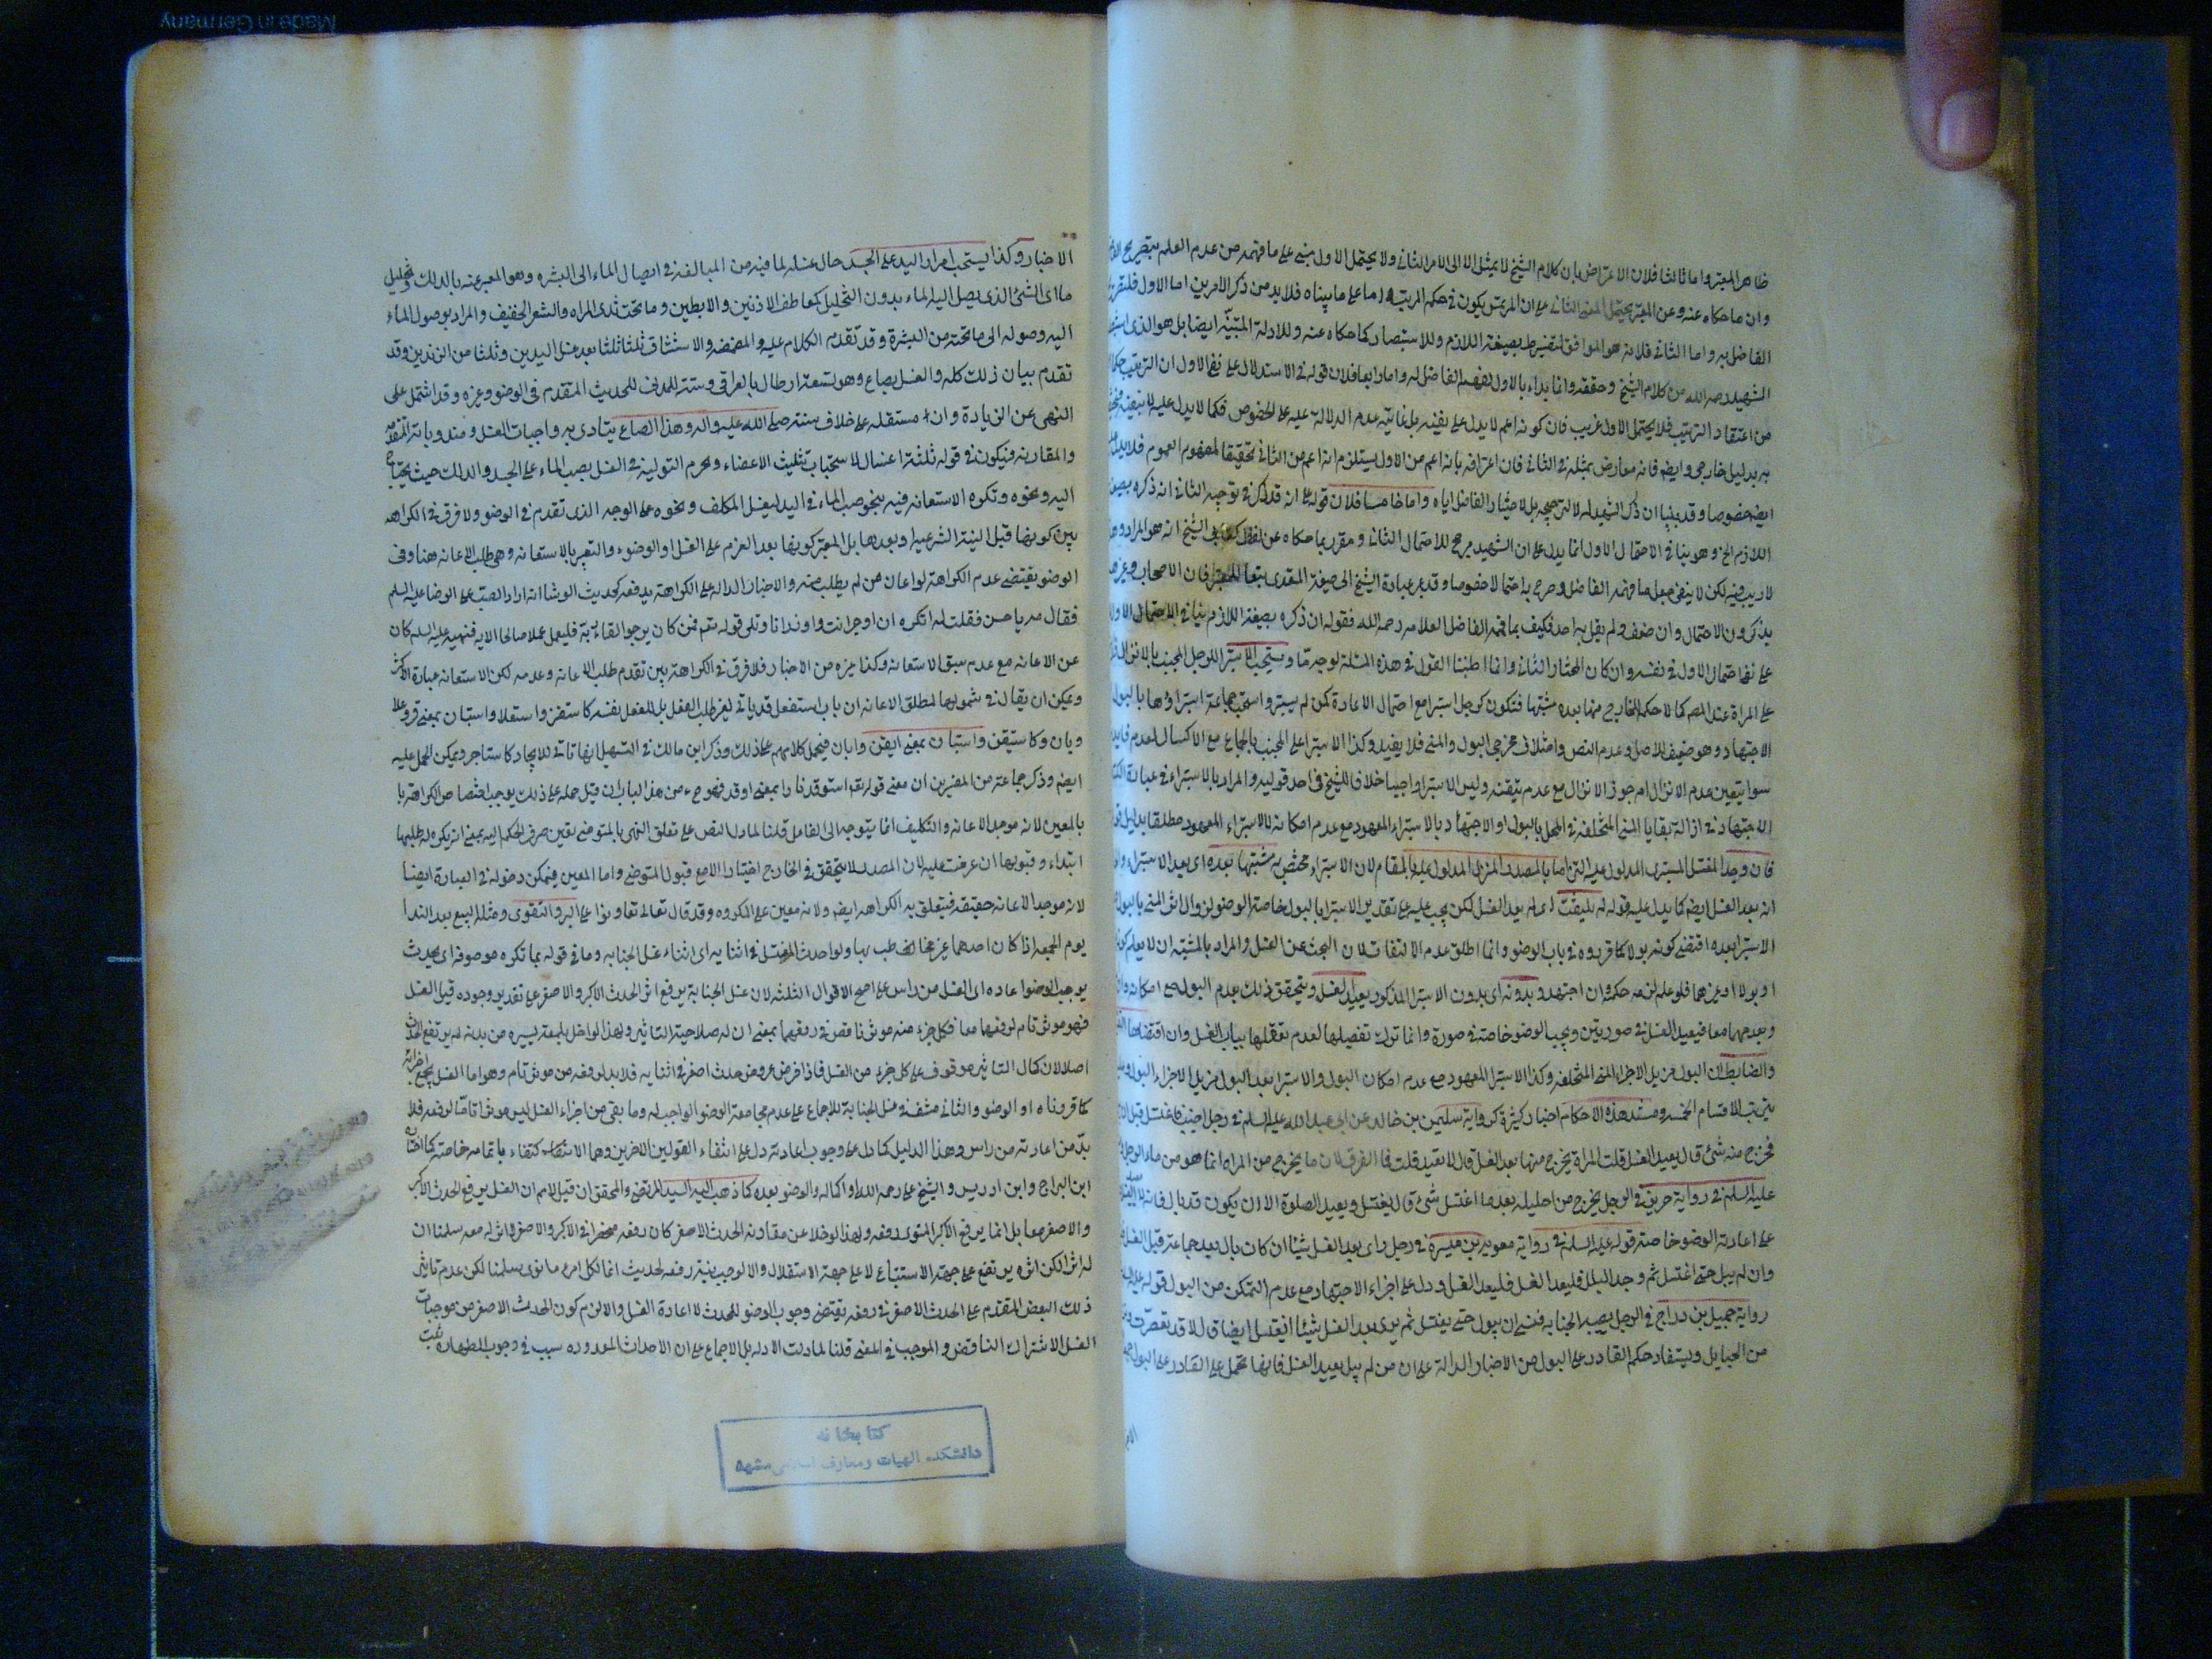 ظاهر المعتبر واما ثالثا فلان الاعتراض بان كلام الشيخ لا يميل الا الى الامر الثاني ولا يحتمل الاول مبنى على ما فهمه من عدم العلم بتصريح
وان ما حكاه عنه وعن المعتبر يحتمل المعنى الثاني على ان المريض يكون في حكم المرتب واما على ما بيناه فلا بد من ذكر الامرين اما الاول
الفاضل به واما الثاني فلانه هو الموافق لتفسيره بصيغة اللازم وللاستبصار كما حكاه عنه وللادلة المبينة ايضا بل هو الذى
الشهيد رحمه الله من كلام الشيخ وحققه وانما بداء بالاول لفهم الفاضل له واما رابعا فلان قوله في الاستدلال على نفى الاول ان الترتيب
من اعتقاد الترتيب فلا يحتمل الاول غريب فان كونه اعم لا يدل على نفيه بل غايته عدم الدلالة عليه على الخصوص فكما لا يدل عليه لا ينفيه
به بدليل خارجي وايضا فانه معارض بمثله في الثاني فان اعترافه بانه اعم من الاول يستلزم انه اعم من الثاني تحقيقا لمفهوم العموم فلا يدل
ايضا خصوصا وقد بينا ان ذكر الشهيد له لا لترجيحه بل لاختيار الفاضل اياه واما خامسا فلان قوله على انه قد ذكر في توجيه الثاني انه ذكره بصيغة
اللازم الخ وهو ينافي الاحتمال الاول انما يدل على ان الشهيد مرجح للاحتمال الثاني ومقرر بما حكاه عن لفظ الشيخ انه هو المراد
لا ريب فيه لكن لا ينفى جعل ما فهمه الفاضل وصرح به احتمالا خصوصا وقد عبر عبارة الشيخ الى صيغة المتعدى تبعا للمعتبر فان الاصحاب وغيرهم
يذكرون الاحتمال وان ضعف ولم يقل به احد فكيف بما فهمه الفاضل العلامه رحمه الله فقوله ان ذكره بصيغة اللازم ينافي الاحتمال الاول
على نفى احتمال الاول في نفسه وان كان المختار الثاني وانما اطنبنا القول في هذه المسئلة لوجه ما ويستحب الاستبراء للرجل المجنب بالانزال
على المراة عند المص كما لا حكم للخارج منها بعده مشتبها فتكون كرجل استبرا مع احتمال الاعادة كمن لم يستبر واستحب جماعة استبراؤها بالبول
الاجتهاد وهو ضعيف للاصل وعدم النص واختلاف مخرجي البول والمنى فلا يفيد وكذا لا استبرا على المجنب بالجماع مع الاكسال لعدم فايدته
سوا تيقن عدم الانزال ام جوز الانزال مع عدم تيقنه وليس الاستبرا واجبا خلافا للشيخ في احد قوليه والمراد بالاستبراء في عبارة
الاجتهاد في ازالة بقايا المنى المتخلفه في المحل بالبول او الاجتهاد بالاستبراء المعهود مع عدم امكانه لا الاستبراء المعهود مطلقا بدليل
فان وجد المغتسل المستبرى المدلول عليه التزاما بالمصدر المنزل المدلول عليه بالمقام لان الاستبراء مختص به مشتبها بعده اى بعد الاستبراء
انه بعد الغسل ايضا كما يدل عليه قوله لم يلتفت اى لم يعد الغسل لكن يجب عليه على تقدير الاستبرا بالبول خاصة الوضو لزوال اثر المنى بالبول
الاستبرا بعده اقتضى كونه بولا كما قرروه في باب الوضو وانما اطلق عدم الالتفات لان البحث عن الغسل والمراد بالمشتبه ان لا يعلم كونه
او بولا او غيرهما فلو علم لزمه حكمه وان اجتهد وبدونه اى بدون الاستبرا المذكور يعيد الغسل ويتحقق ذلك بعدم البول مع امكانه
وبعدمهما معا فيعيد الغسل في صورتين ويجب الوضو خاصة في صورة وانما ترك تفصيلها لعدم تعلقها بباب الغسل وان اقتضاها
والضابط ان البول مزيل لاجزاء المنى المتخلفه وكذا الاستبرا المعهود مع عدم امكان البول والاستبرا بعد البول مزيل لاجزاء البول
يترتب الاقسام الخمسه ومستند هذه الاحكام اخبار كثيرة كرواية سليمن بن خالد عن ابى عبد الله عليه السلم في رجل اجنب فاغتسل قبل ان
فخرج منه شئ قال يعيد الغسل قلت المراة يخرج منها بعد الغسل قال لا تعيد قلت فما الفرق قال لان ما يخرج من المراه انما هو من ماء الرجل
عليه السلم في رواية حريز في الرجل يخرج من احليله بعد ما اغتسل شئ قال يغتسل ويعيد الصلوة الا ان يكون قد بال فانه لا
على اعادته الوضو خاصة قوله عليه السلم في رواية معوية بن ميسرة في رجل راى بعد الغسل شيئا ان كان بال بعد جماعه قبل الغسل
وان لم يبل حتى اغتسل ثم وجد البلل فليعد الغسل ودل على اجزاء الاجتهاد مع عدم التمكن من البول قوله عليه السلم
رواية جميل بن دراج في الرجل يصيبه الجنابه فنسى ان يبول حتى يغتسل ثم يرى بعد الغسل شيئا ايغتسل ايضا قال لا قد تعصرت
من الحبايل ويستفاد حكم القادر على البول من الاخبار الدالة على ان من لم يبل يعيد الغسل فانها تحمل على القادر على البول
الاخبار وكذا يستحب امرار اليد على الجسد حال غسله لما فيه من المبالغه في ايصال الماء الى البشره وهو المعبر عنه بالدلك وتخليل
ما اى الشئ الذى يصل اليه الماء بدون التخليل كمعاطف الاذنين والابطين وما تحت ثدى المراه والشعر الخفيف والمراد بوصول الماء
اليه وصوله الى ما تحته من البشرة وقد تقدم الكلام عليه والمضمضه والاستنشاق ثلثا ثلثا بعد غسل اليدين وثلثا من الزندين وقد
تقدم بيان ذلك كله والغسل بصاع وهو تسعة ارطال بالعراقى وستة بالمدنى للحديث المتقدم في الوضو وغيره وقد اشتمل على
النهى عن الزيادة وان مستقله على خلاف سنته صلى الله عليه واله وهذا الصاع يتادى به واجبات الغسل ومندوباته المتقدمه
والمقارنه فيكون في قوله ثلثة اغسال لاستحباب تثليث الاعضاء ويحرم التولية في الغسل بصب الماء على الجسد والدلك حيث يحتاج
اليه ونحوه وتكره الاستعانه فيه بنحو صب الماء في اليد ليغسل المكلف ونحوه على الوجه الذى تقدم في الوضو ولا فرق في الكراهه
بين كونها قبل النية الشرعية او بعدها بل المعتبر كونها بعد العزم على الغسل او الوضوء والتعبير بالاستعانه وهى طلب الاعانه هنا وفى
الوضو يقتضى عدم الكراهة لو اعان من لم يطلب منه والاخبار الداله على الكراهة يدفعه كحديث الوشا انه اراد الصب على الرضا عليه السلم
فقال مه يا حسن فقلت له اتكره ان اوجر انت واوزر انا وتلى قوله تعم فمن كان يرجوا لقاء ربه فليعمل عملا صالحا الايه فنهيه عليه السلم كان
عن الاعانه مع عدم سبق الاستعانه وكذا غيره من الاخبار فلا فرق في الكراهة بين تقدم طلب الاعانه وعدمه لكن الاستعانه عبارة الاكثر
ويمكن ان يقال في شمولها لمطلق الاعانه ان باب استفعل قد ياتى لغير طلب الفعل بل للفعل نفسه كاستقر واستعلا واستبان بمعنى قر وعلا
وبان وكاستيقن واستبان بمعنى ايقن وابان فيحمل كلامهم على ذلك وذكر ابن مالك في التسهيل انها تاتى للايجاد كاستاجر ويمكن الحمل عليه
ايضا وذكر جماعة من المفسرين ان معنى قوله تعم استوقد نارا بمعنى اوقد فهو ح من هذا الباب ان قيل حمله على ذلك يوجب اختصاص الكراهة
بالمعين لانه موجد الاعانه والتكليف انما يتوجه الى الفاعل قلنا لما دل النص على تعلق النهى بالمتوضى تعين صرف الحكم اليه بمعنى انه يكره له طلبها
ابتداء وقبولها ان عرضت عليه لان المصدر لا يتحقق في الخارج اختيارا الا مع قبول المتوضى واما المعين فيمكن دخوله في العبارة ايضا
لانه موجد الاعانه حقيقه فيتعلق به الكراهه ايضا ولانه معين على المكروه وقد قال تعالى تعاونوا على البر والتقوى ومثله البيع بعد الندا
يوم الجمعه اذا كان احدهما غير مخاطب بها ولو احدث المغتسل في اثنايه اى اثناء غسل الجنابه وما في قوله بما تكره موصوفه اى بحدث
يوجب الوضوا عاده اى الغسل من راس على اصح الاقوال الثلثه لان غسل الجنابة يرفع اثر الحدث الاكبر والاصغر على تقدير وجوده قبل الغسل
فهو موثر تام لرفعهما معا فكل جزء منه موثر ناقص في رفعهما بمعنى ان له صلاحية التاثير ولهذا لو اخل بلمعة يسيره من بدنه لم يرتفع الحدث
اصلا لان كمال التاثير موقوف على كل جزء من الغسل فاذا فرض عروض حدث اصغر في اثنايه فلا بد لرفعه من موثر تام وهو اما الغسل بجميع اجزائه
كما قررناه او الوضو والثاني منتف في غسل الجنابة للاجماع على عدم مجامعة الوضو الواجب له وما بقى من اجزاء الغسل ليس موثرا تاما لرفعه فلا
بد من اعادته من راس وهذا الدليل كما دل على وجوب اعادته دل على انتفاء القولين الاخرين وهما الاكتفاء باتمامه خاصة كما اختاره
ابن البراج وابن ادريس والشيخ على رحمه الله او اكماله والوضو بعده كما ذهب اليه السيد المرتضى والمحقق ان قيل لانم ان الغسل يرفع الحدث الاكبر
والاصغر معا بل انما يرفع الاكبر المنوى رفعه ولهذا لو خلا عن مقارنة الحدث الاصغر كان رفعه منحصرا في الاكبر والاصغر لا اثر له معه سلمنا ان
له اثرا لكن اثره يرتفع على جهة الاستتباع لا على جهة الاستقلال والا لوجب نية رفعه لحديث انما لكل امرء ما نوى سلمنا لكن عدم تاثير
ذلك البعض المتقدم على الحدث الاصغر في رفعه يقتضى وجوب الوضو للحدث لا اعادة الغسل والا لزم كون الحدث الاصغر من موجبات
الغسل لاشتراك الناقض والموجب في المعنى قلنا لما دلت الادله بل الاجماع على ان الاحداث المعدوده سبب في وجوب الطهارة
كتابخانه
دانشكده الهيات ومعارف اسلامى مشهد
Made in Germany